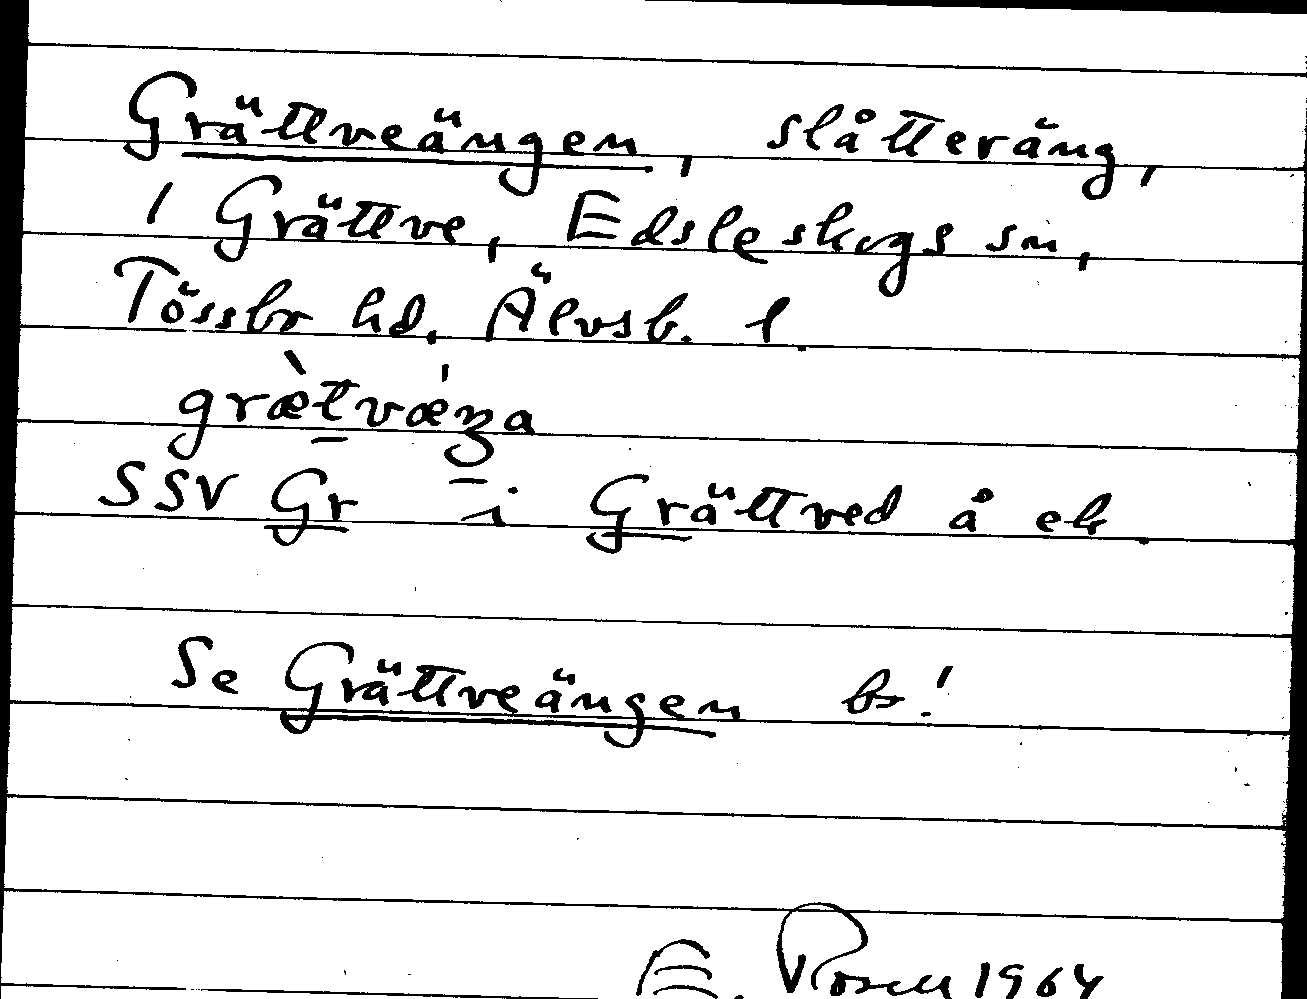 Grättveängen, slåtteräng,
1 Grättve, Edsleskogs sn,
Tössbo hd, Älvsb. l.
grætvæŋa
SSV Gr i Grättved å ek.
Se Grättveängen bs!
E. Rosell 1964